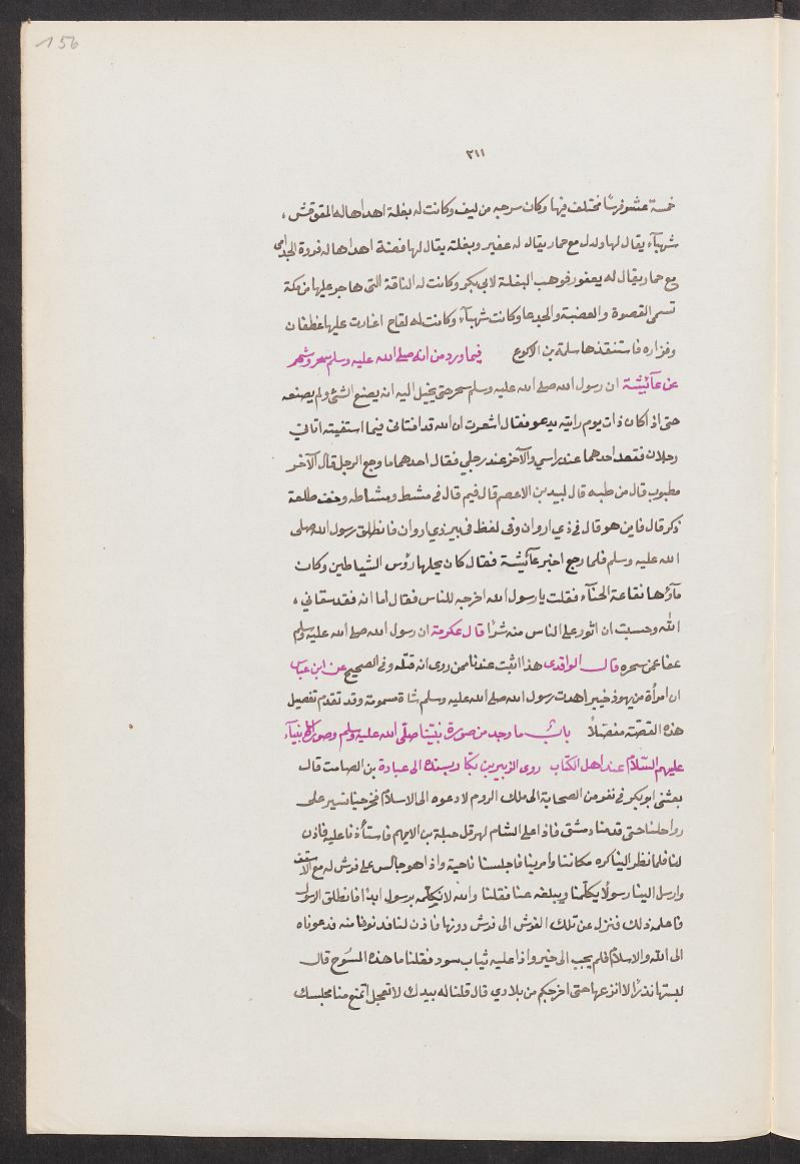 156
٣١١
خمسة عشر فرسًا مختلف فيها وكان سرجه من ليف وكانت له بغلة اهداها له المقوقش،
شهبآء يقال لها دلدل مع حمار يقال له عفير وبغلته يقال لها فضة اهداها له فروة الجذامي
مع حمار يقال له يعفور فوهب البغلة لابي بكر وكانت له الناقة التي هاجر عليها من مكة
تسمى القصوة والعضبة والجدعا وكانت شهبآء وكانت له لقاح اغارت عليها غطفان
وفزاره فاستنقذها سلمة بن الاكوع فيما ورد من انه صلى الله عليه وسلم سحر وسُمَّ
عن عآئيشة ان رسول الله صلى الله عليه وسلم سحر حتى يخيل اليه انه يصنع الشئ ولم يصنعه
حتى اذا كان ذات يوم رايته يدعو فقال اشعرت ان الله قد افتاني فيما استفيته اتاني
رجلان فقعد احدهما عند راسي والآخر عند رجلي فقال احدهما ما وجع الرجل قال الآخر
مطبوب قال من طبه قال لبيد بن الاعصم قال فيم قال في مشط ومشاطه وجف طلعة
ذكر قال فاين هو قال في ذي اروان وفى لفظ فى بير ذي اروان فانطلق رسول الله صلى
الله عليه وسلم فلما رجع اخبر عآئيشة فقال كان نخلها رؤس الشياطين وكان
مآؤها نقاعة الحنآء فقلت يا رسول الله اخرجه للناس فقال اما انه فقد سقاني،
الله وحسبت ان اثور على الناس منه شرًا قال عكرمة ان رسول الله صلى الله عليه وسلم
عفا عمن سحره قال الواقدى هذا اثبت عندنا ممن روى انه قتله وفى الصحيح عن ابن عباس
ان امرأة من يهوذ خيبر اهدت رسول الله صلى الله عليه وسلم شاة مسمومة وقد تقدم تفصيل
هذه القصّته مفصلاً باب ما وجد من صورة نبيّنا صلّى الله عليه وسلم وصور الانبيآء
عليهم السّلام عند اهل الكتاب روى الزبير بن بكا ر بسنده الى عبادة بن الصامت قال
بعثنى ابوبكر في نفر من الصحابة الى ملك الروم لادعوه الى الاسلام فخرجنا نسير على
رواحلنا حتى قدمنا دمشق فاذا على الشام لهرقل جبلة بن الايهم فاستأذنا عليه فاذن
لنا فلما نظر الينا كره مكاننا وامر بنا فاجلسنا ناحية واذا هو جالس على فرش له مع الاسقف
وارسل الينا رسولًا يكلّمنا ويبلغه عنا فقلنا والله لا نكلّمه برسول ابدًا فانطلق الرسول
فاعلمه ذلك فنزل عن تلك الفرش الى فرش دونها فاذن لنا فدنونا منه فدعوناه
الى الله والاسلام فلم يجب الى خير واذا عليه ثياب سود فقلنا ما هذه المسوح قال
لبستها نذرًا لا انزعها حتى اخرجكم من بلادي قال قلنا له بيدك لا تعجل اتمنع منا مجلسك